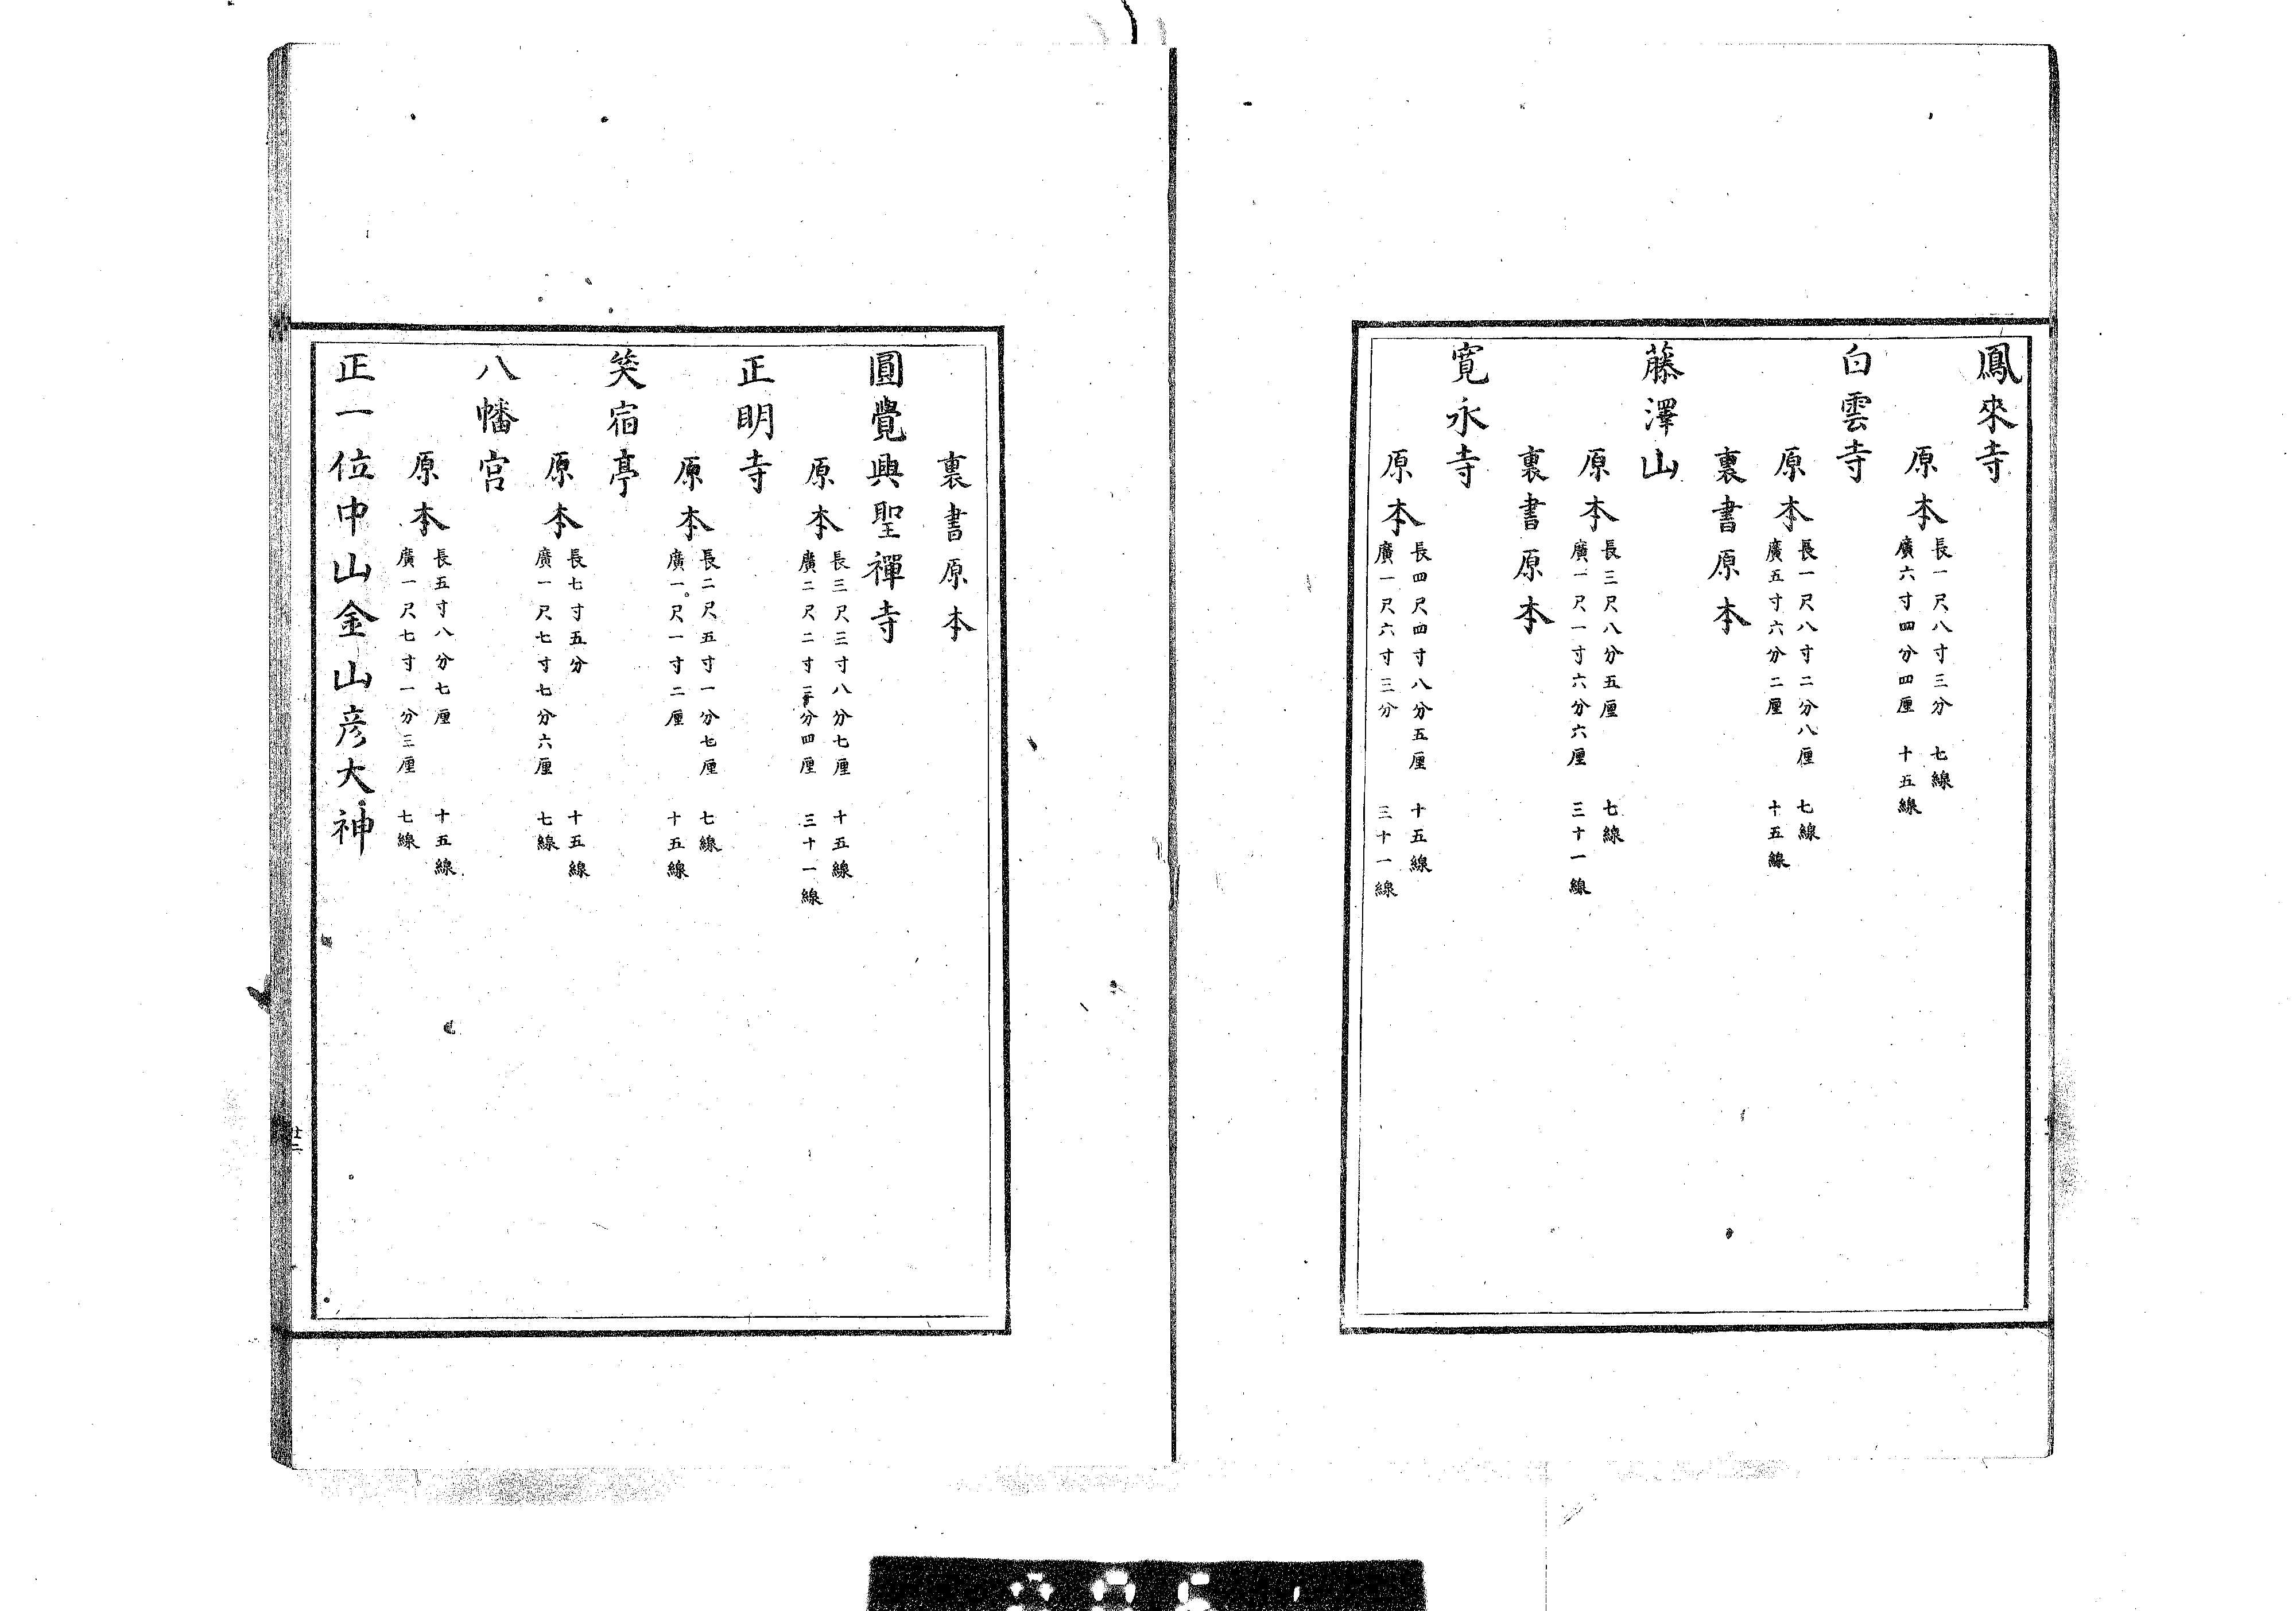 鳳來寺
原本
長一尺八寸三分 七線
廣六寸四分四厘 十五線
白雲寺
原本
長一尺八寸二分八厘 七線
廣五寸六分二厘 十五線
裏書原本
藤澤山
原本
長三尺八分五厘 七線
廣一尺一寸六分六厘 三十一線
裏書原本
寛永寺
原本
長四尺四寸八分五厘 十五線
廣一尺六寸三分 三十一線
裏書原本
圓覺興聖禪寺
原本
長三尺三寸八分七厘 十五線
廣二尺二寸三分四厘 三十一線
正明寺
原本
長二尺五寸一分七厘 七線
廣一尺一寸二厘 十五線
笑宿亭
原本
長七寸五分 十五線
廣一尺七寸七分六厘 七線
八幡宮
原本
長五寸八分七厘 十五線
廣一尺七寸一分三厘 七線
正一位中山金山彦大神